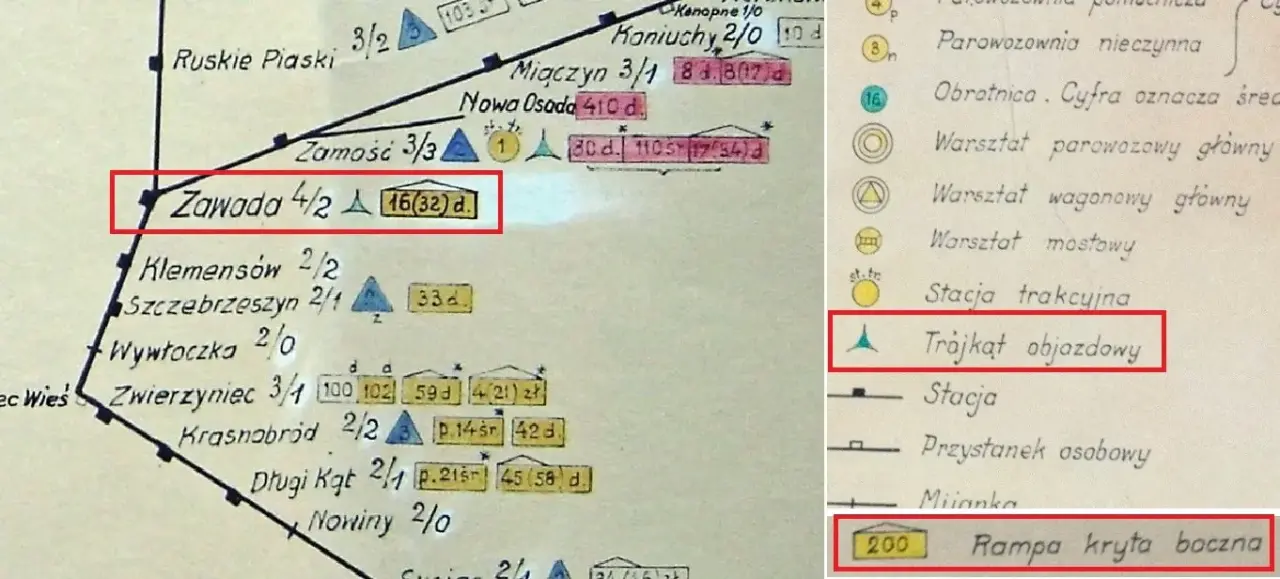 103
Ruskie Piaski 3/2
Konopne 1/0
Koniuchy 2/0 10 d
Miączyn 3/1 8 d. 8(17) d
Nowa Osada 410 d.
st. tr.
Zamość 3/3 2 1 30 d. 110 śr 17(34) d
Zawada 4/2 16(32) d.
Klemensów 2/2
Szczebrzeszyn 2/1 2 33 d.
Wywłoczka 2/0
ec Wieś Zwierzyniec 3/1 100 d 102 d 59 d 4(21) zł
Krasnobród 2/2 3 p.14śr. 42 d.
Długi Kąt 2/1 p.21śr. 45(58) d.
Nowiny 2/0
2/1
4 p
3 n Parowozownia nieczynna
16 Obrotnica. Cyfra oznacza śred
Warsztat parowozowy główny
Warsztat wagonowy główny
Warsztat mostowy
st. tr.
Stacja trakcyjna
Trójkąt objazdowy
Stacja
Przystanek osobowy
Mijanka
200 Rampa kryta boczna